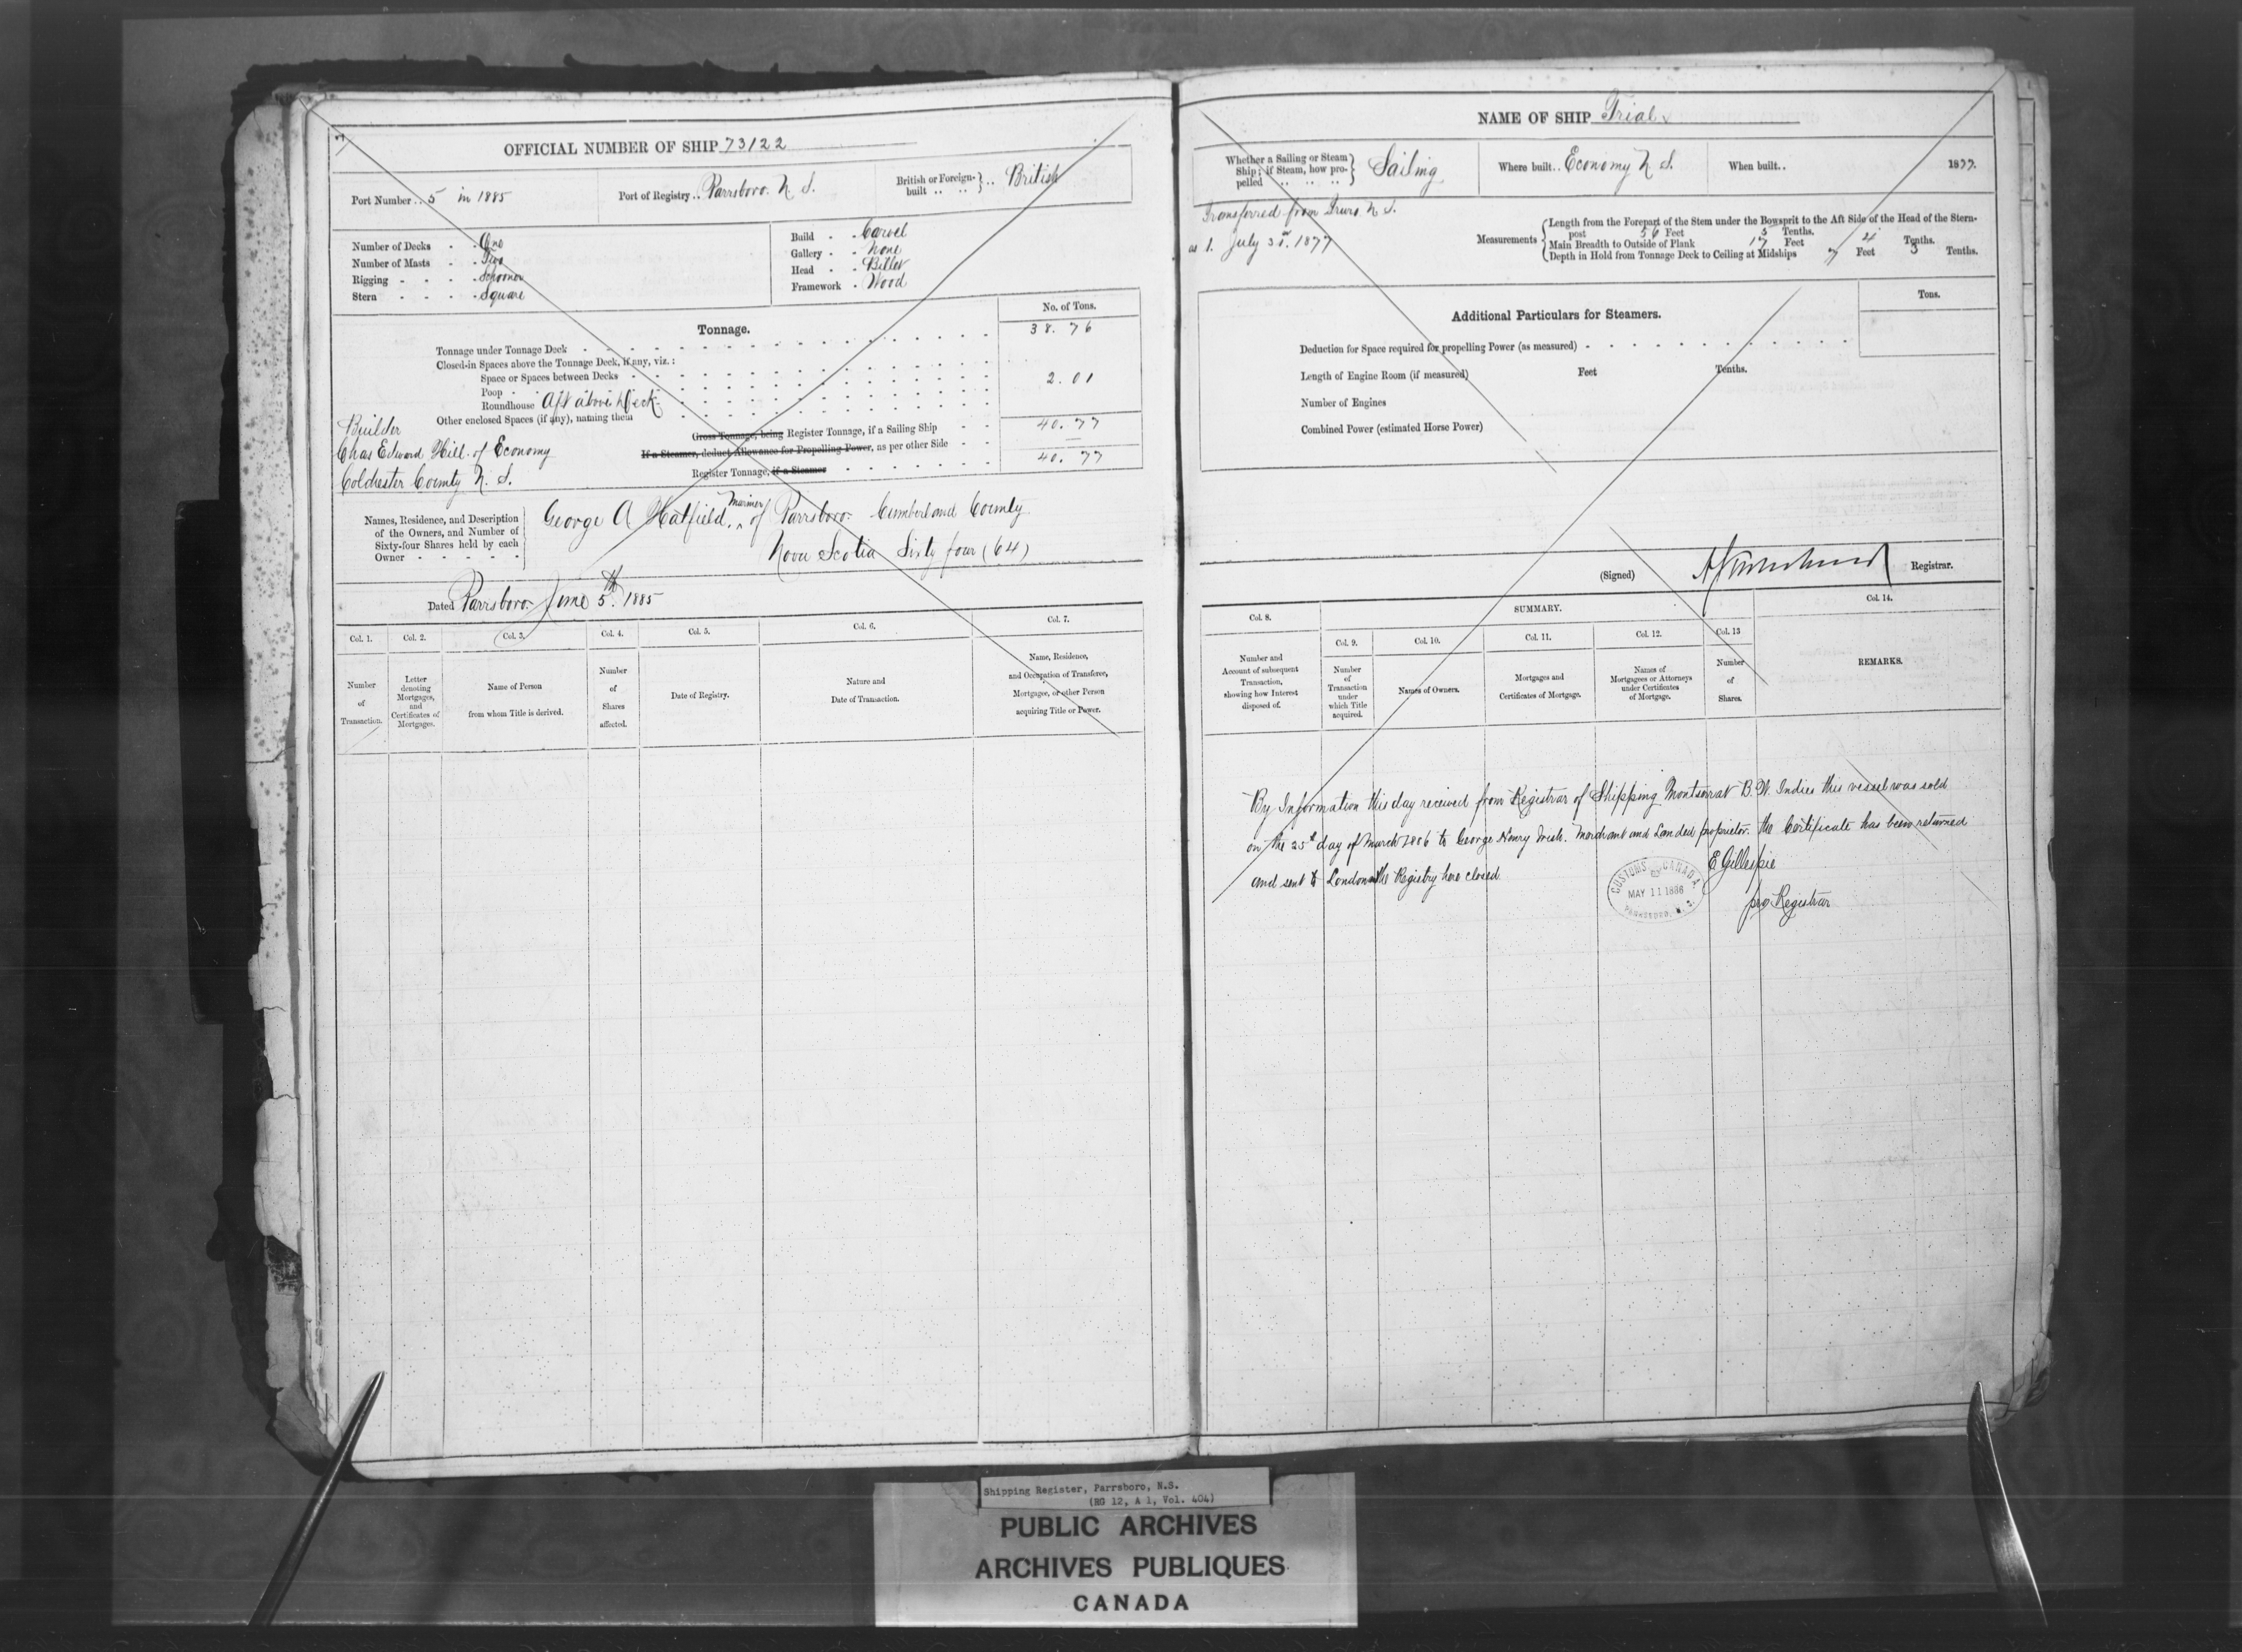 OFFICIAL NUMBER OF SHIP 73122
Port Number .. 5 in 1885
Port of Registry .. Parrsboro. N. S.
British or Foreign-built .. .. } .. British
Number of Decks - - One
Number of Masts - - Two
Rigging - - - - Schooner
Stern - - - - Square
Build - - Carvel
Gallery - - None
Head - - Billet
Framework - Wood
No. of Tons.
Tonnage.
Tonnage under Tonnage Deck 38. 76
Closed-in Spaces above the Tonnage Deck, if any, viz.:
Space or Spaces between Decks
Poop 2. 01
Roundhouse Aft above Deck
Other enclosed Spaces (if any), naming them
Gross Tonnage, being Register Tonnage, if a Sailing Ship 40. 77
If a Steamer, deduct Allowance for Propelling Power, as per other Side —
Register Tonnage, if a Steamer 40. 77
Builder
Chas Edward Hill of Economy
Colchester County N. S.
Names, Residence, and Description
of the Owners, and Number of
Sixty-four Shares held by each
Owner - - - -
George A Hatfield, Mariner of Parrsboro. Cumberland County
Nova Scotia Sixty four (64)
Dated Parrsboro. June 5th. 1885
Col. 1. Col. 2. Col. 3. Col. 4. Col. 5. Col. 6. Col. 7.
Number of Transaction.
Letter denoting Mortgages, and Certificates of Mortgages.
Name of Person from whom Title is derived.
Number of Shares affected.
Date of Registry.
Nature and Date of Transaction.
Name, Residence, and Occupation of Transferee, Mortgagee, or other Person acquiring Title or Power.
NAME OF SHIP Trial
Whether a Sailing or Steam Ship; if Steam, how propelled .. .. .. } Sailing
Where built .. Economy N. S.
When built .. 1877.
Transferred from Truro N. S.
as 1. July 31st. 1877
Measurements
Length from the Forepart of the Stem under the Bowsprit to the Aft Side of the Head of the Stern-
post 56 Feet 3 Tenths.
Main Breadth to Outside of Plank 17 Feet 4 Tenths.
Depth in Hold from Tonnage Deck to Ceiling at Midships 7 Feet 3 Tenths.
Tons.
Additional Particulars for Steamers.
Deduction for Space required for propelling Power (as measured)
Length of Engine Room (if measured) Feet Tenths.
Number of Engines
Combined Power (estimated Horse Power)
(Signed) Registrar.
SUMMARY.
Col. 8. Col. 9. Col. 10. Col. 11. Col. 12. Col. 13 Col. 14.
Number and Account of subsequent Transaction, showing how Interest disposed of.
Number of Transaction under which Title acquired.
Names of Owners.
Mortgages and Certificates of Mortgage.
Names of Mortgagees or Attorneys under Certificates of Mortgage.
Number of Shares.
REMARKS.
By Information this day received from Registrar of Shipping Montserrat B. W. Indies this vessel was sold
on the 25th day of March 1886 to George Henry Merchant and Landed proprietor. the Certificate has been returned
and sent to London the Registry here closed
E Gillespie
pro Registrar
CUSTOMS CANADA
MAY 11 1886
PARRSBORO, N. S.
Shipping Register, Parrsboro, N.S.
(RG 12, A 1, Vol. 404)
PUBLIC ARCHIVES
ARCHIVES PUBLIQUES
CANADA